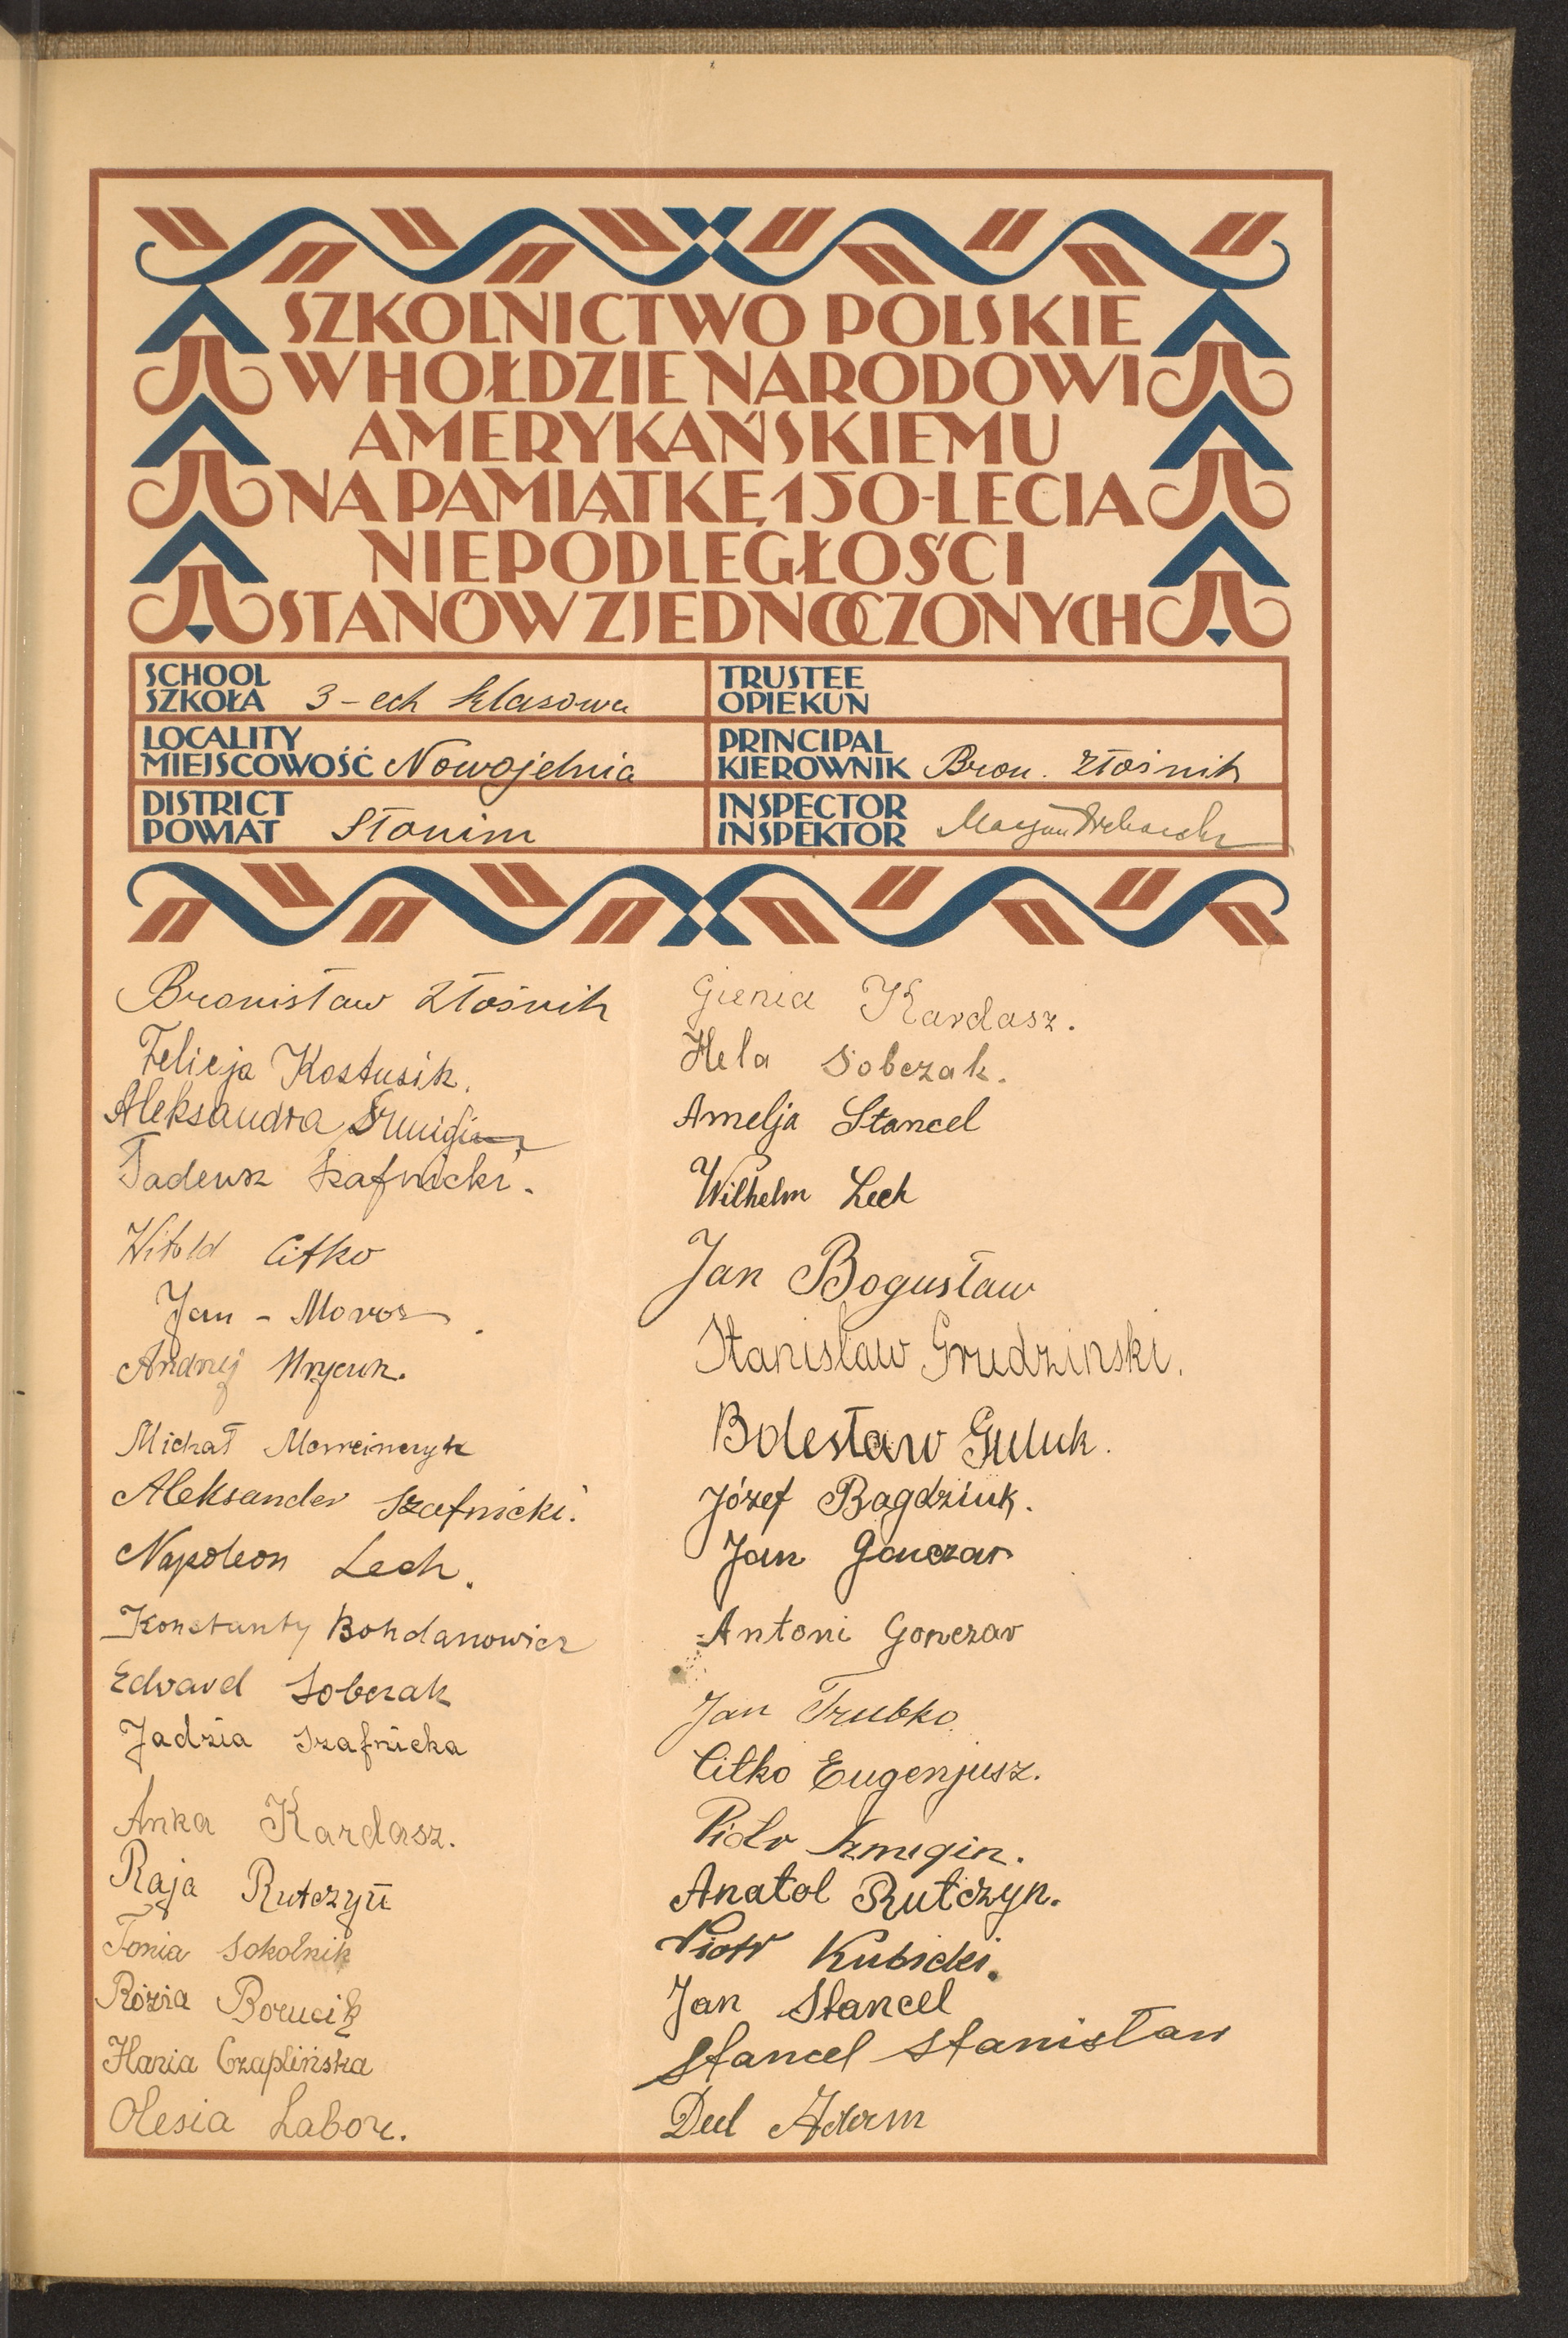 SZKOLNICTWO POLSKIE
W HOŁDZIE NARODOWI
AMERYKAŃSKIEMU
NA PAMIĄTKĘ 150-LECIA
NIEPODLEGŁOŚCI
STANÓW ZJEDNOCZONYCH
SCHOOL
SZKOŁA 3-ech klasowa
TRUSTEE
OPIEKUN
LOCALITY
MIEJSCOWOŚĆ Nowojelnia
PRINCIPAL
KIEROWNIK Bron. Złośnik
DISTRICT
POWIAT Słonim
INSPECTOR
INSPEKTOR Maryan
Bronisław Złośnik
Felicja Kostusik.
Aleksandra
Tadeusz Szafnicki.
Witold Citko
Jan - Moroz
Andrzej Hrycuk.
Michał
Aleksander Szafnicki.
Napoleon Lech.
Konstanty Bohdanowicz
Edward Sobczak
Jadzia Szafnicka
Anka Kardasz.
Raja Rutczyn
Tonia Sokolnik
Rózia Borucik
Hania Czaplińska
Olesia Laboz.
Gienia Kardasz.
Hela Sobczak.
Amelja Stancel
Wilhelm Lech
Jan Bogusław
Stanisław Grudzinski.
Bolesław Guluk.
Józef Bagdziuk.
Jan Gonczar
Antoni Gonczar
Jan Trubko
Citko Eugenjusz.
Piotr Szmigin.
Anatol Rutczyn.
Piotr Kubicki.
Jan Stancel
Stancel Stanisław
Dul Adam